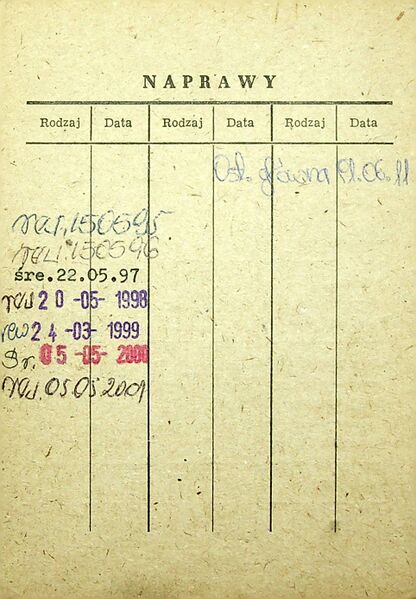 NAPRAWY
Rodzaj Data Rodzaj Data Rodzaj Data
Osł. główna 01.06.11
150595
150596
śre. 22.05.97
rew 20 -05- 1998
rew 24 -03- 1999
Śr. 05 -05- 2000
rew. 05.05 2001